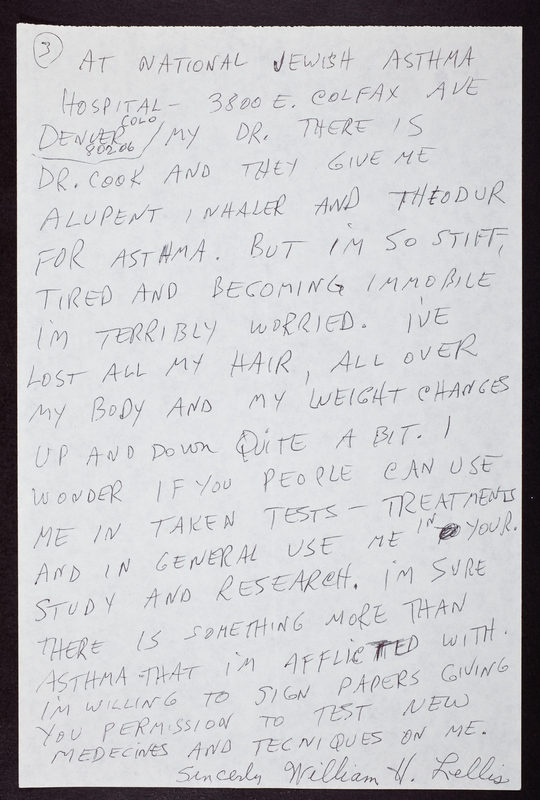 3
AT NATIONAL JEWISH ASTHMA
HOSPITAL - 3800 E. COLFAX AVE
DENVER COLO 80206 / MY DR. THERE IS
DR. COOK AND THEY GIVE ME
ALUPENT INHALER AND THEODUR
FOR ASTHMA. BUT I'M SO STIFF,
TIRED AND BECOMING IMMOBILE
I'M TERRIBLY WORRIED. I'VE
LOST ALL MY HAIR, ALL OVER
MY BODY AND MY WEIGHT CHANGES
UP AND DOWN QUITE A BIT. I
WONDER IF YOU PEOPLE CAN USE
ME IN TAKEN TESTS - TREATMENTS
AND IN GENERAL USE ME IN YOUR.
STUDY AND RESEARCH. I'M SURE
THERE IS SOMETHING MORE THAN
ASTHMA THAT I'M AFFLICTTED WITH.
I'M WILLING TO SIGN PAPERS GIVING
YOU PERMISSION TO TEST NEW
MEDECINES AND TECNIQUES ON ME.
Sincerly William H. Lellis